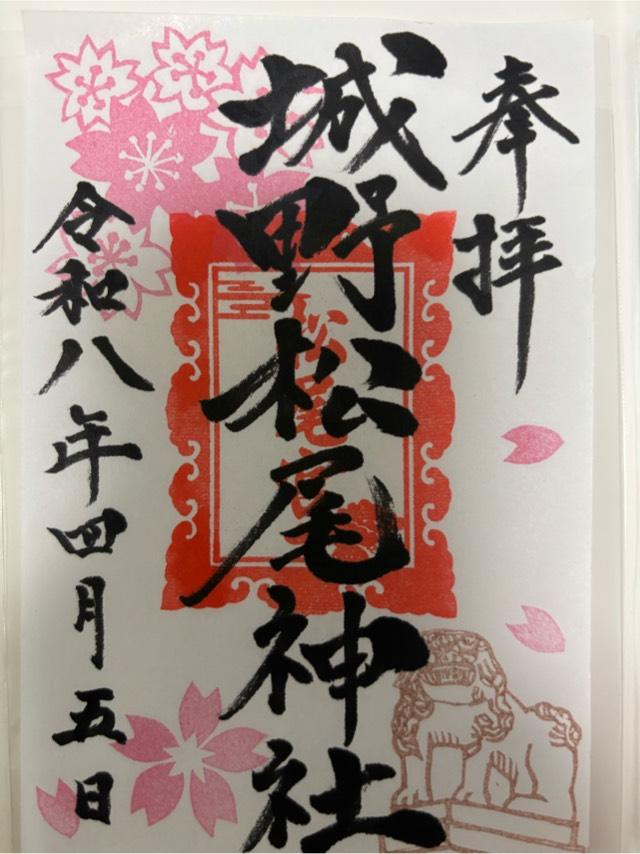 奉拝
城野松尾神社
松尾
令和八年四月五日